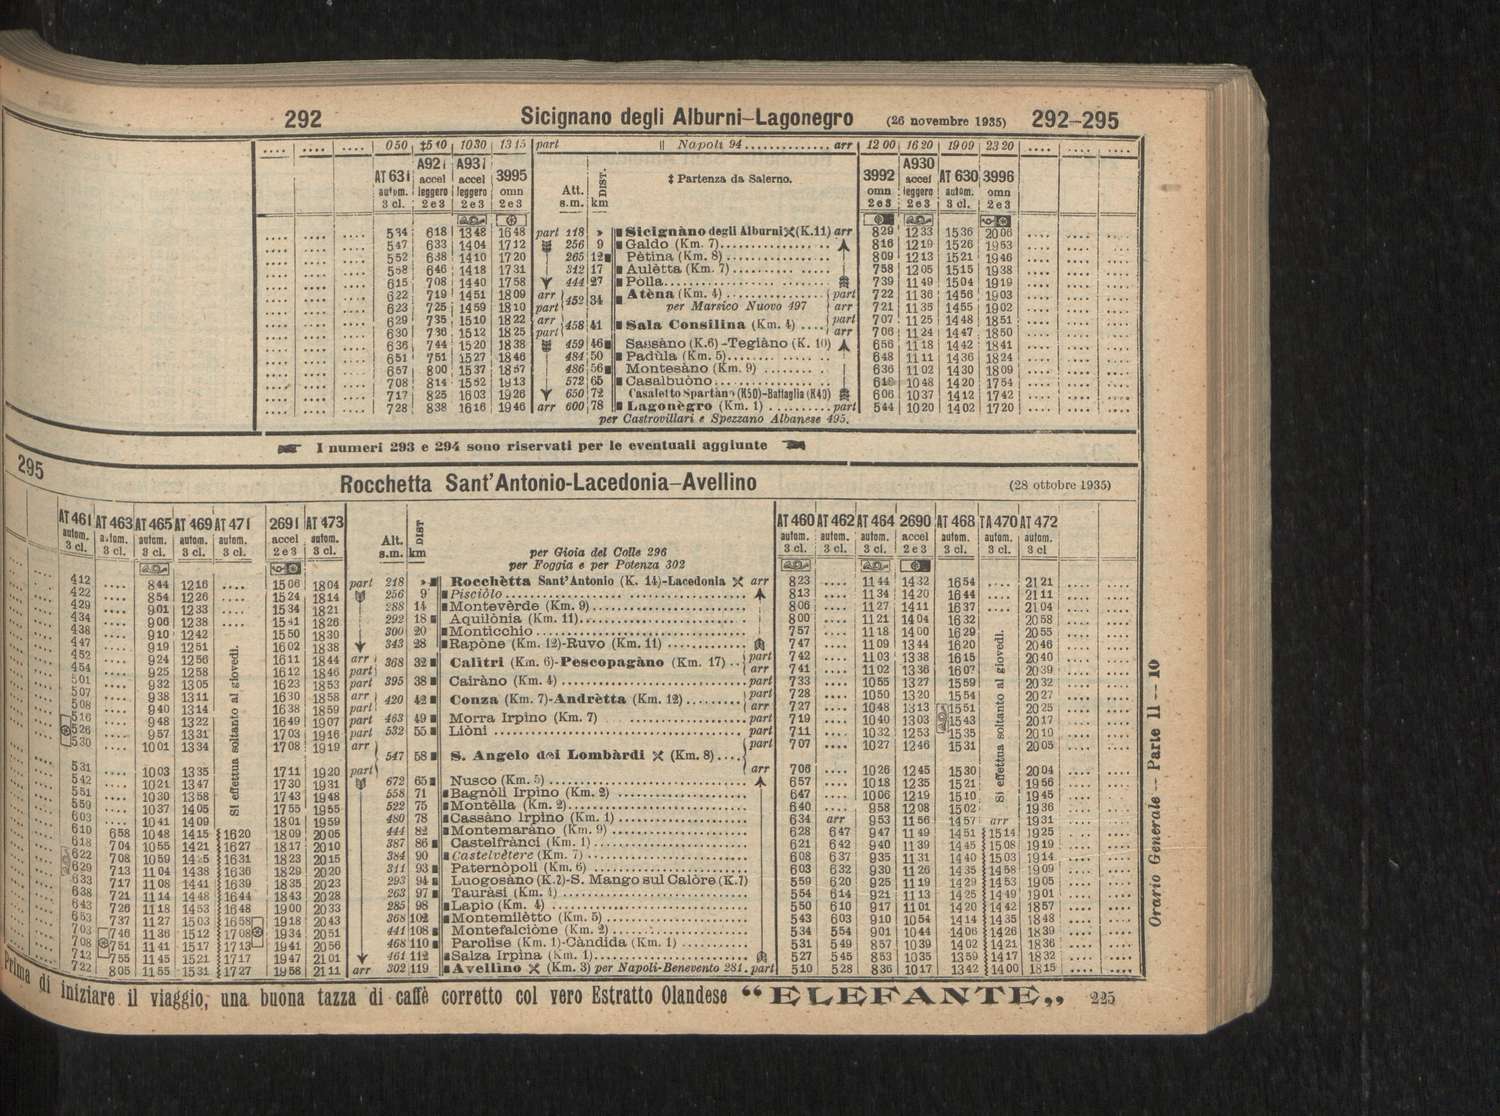 292 Sicignano degli Alburni–Lagonegro (26 novembre 1935) 292–295
.... .... .... 0 50 ‡5 40 10 30 13 15 part || Napoli 94 ............. arr 12 00 16 20 19 09 23 20 .... .... ....
AT 631 autom. 3 cl. A921 accel leggero 2 e 3 A931 accel leggero 2 e 3 3995 omn 2 e 3 Att. s.m. DIST. km ‡ Partenza da Salerno. 3992 omn 2 e 3 A930 accel leggero 2 e 3 AT 630 autom. 3 cl. 3996 omn 2 e 3
5 34 6 18 13 48 16 48 part 218 » Sicignàno degli Alburni (K.11) arr 8 29 12 33 15 36 20 06
5 47 6 33 14 04 17 12 256 9 Galdo (Km. 7) 8 16 12 19 15 26 19 53
5 52 6 38 14 10 17 20 265 12 Pètina (Km. 8) 8 09 12 13 15 21 19 46
5 58 6 46 14 18 17 31 312 17 Aulètta (Km. 7) 7 58 12 05 15 15 19 38
6 15 7 08 14 40 17 58 444 27 Polla 7 39 11 49 15 04 19 19
6 22 7 19 14 51 18 09 arr 452 34 Atèna (Km. 4) part 7 22 11 36 14 56 19 03
6 23 7 25 14 59 18 10 part per Marsico Nuovo 497 arr 7 21 11 35 14 55 19 02
6 29 7 35 15 10 18 22 arr 458 41 Sala Consilina (Km. 4) part 7 07 11 25 14 48 18 51
6 30 7 36 15 12 18 25 part arr 7 06 11 24 14 47 18 50
6 36 7 44 15 20 18 38 459 46 Sassàno (K.6)-Tegiàno (K. 10) 6 56 11 18 14 42 18 41
6 51 7 51 15 27 18 46 484 50 Padùla (Km. 5) 6 48 11 11 14 36 18 24
6 57 8 00 15 37 18 57 486 56 Montesàno (Km. 9) 6 36 11 02 14 30 18 09
7 08 8 14 15 52 19 13 572 65 Casalbuòno 10 48 14 20 17 54
7 17 8 25 16 03 19 26 650 72 Casaletto Spartàno (K50)-Battaglia (K40) 6 06 10 37 14 12 17 42
7 28 8 38 16 16 19 46 arr 600 78 Lagonègro (Km. 1) part 5 44 10 20 14 02 17 20
per Castrovillari e Spezzano Albanese 495.
I numeri 293 e 294 sono riservati per le eventuali aggiunte
295 Rocchetta Sant'Antonio-Lacedonia–Avellino (28 ottobre 1935)
AT 461 autom. 3 cl. AT 463 autom. 3 cl. AT 465 autom. 3 cl. AT 469 autom. 3 cl. AT 471 autom. 3 cl. 2691 accel 2 e 3 AT 473 autom. 3 cl. Att. s.m. DIST km AT 460 autom. 3 cl. AT 462 autom. 3 cl. AT 464 autom. 3 cl. 2690 accel 2 e 3 AT 468 autom. 3 cl. TA 470 autom. 3 cl. AT 472 autom. 3 cl
per Gioia del Colle 296
per Foggia e per Potenza 302
4 12 .... 8 44 12 16 .... 15 06 18 04 part 218 » Rocchètta Sant'Antonio (K. 14)-Lacedonia arr 8 23 .... 11 44 14 32 16 54 .... 21 21
4 22 .... 8 54 12 26 15 24 18 14 256 9 Pisciòlo 8 13 .... 11 34 14 20 16 44 .... 21 11
4 29 .... 9 01 12 33 15 34 18 21 288 14 Montevèrde (Km. 9) 8 06 .... 11 27 14 11 16 37 21 04
4 34 .... 9 06 12 38 15 41 18 26 292 18 Aquilònia (Km. 11) 8 00 .... 11 21 14 04 16 32 20 58
4 38 .... 9 10 12 42 15 50 18 30 300 20 Monticchio 7 57 .... 11 18 14 00 16 29 20 55
4 47 .... 9 19 12 51 16 02 18 38 343 28 Rapòne (Km. 12)-Ruvo (Km. 11) 7 47 .... 11 09 13 44 16 20 20 46
4 52 .... 9 24 12 56 16 11 18 44 arr 368 32 Calitri (Km. 6)-Pescopagàno (Km. 17) part 7 42 .... 11 03 13 38 16 15 20 40
4 54 .... 9 25 12 58 16 12 18 46 part arr 7 41 .... 11 02 13 36 16 07 20 39
5 01 .... 9 32 13 05 16 23 18 53 part 395 38 Cairàno (Km. 4) part 7 33 .... 10 55 13 27 15 59 20 32
5 07 .... 9 38 13 11 16 30 18 58 arr 420 42 Conza (Km. 7)-Andrètta (Km. 12) part 7 28 .... 10 50 13 20 15 54 20 27
5 08 .... 9 40 13 14 16 38 18 59 part arr 7 27 .... 10 48 13 13 15 51 20 25
5 16 .... 9 48 13 22 16 49 19 07 part 463 49 Morra Irpino (Km. 7) part 7 19 .... 10 40 13 03 15 43 20 17
5 26 .... 9 57 13 31 17 03 19 16 part 532 55 Liòni part 7 11 .... 10 32 12 53 15 35 20 10
5 30 .... 10 01 13 34 17 08 19 19 arr 547 58 S. Angelo dei Lombàrdi (Km. 8) part 7 07 .... 10 27 12 46 15 31 20 05
5 31 .... 10 03 13 35 17 11 19 20 part arr 7 06 .... 10 26 12 45 15 30 20 04
5 42 .... 10 21 13 47 17 30 19 31 672 65 Nusco (Km. 5) 6 57 .... 10 18 12 35 15 21 19 56
5 51 .... 10 30 13 58 17 43 19 48 558 71 Bagnòli Irpino (Km. 2) 6 47 .... 10 06 12 19 15 10 19 45
5 59 .... 10 37 14 05 17 55 19 55 522 75 Montèlla (Km. 2) 6 40 .... 9 58 12 08 15 02 19 36
6 03 .... 10 41 14 09 18 01 19 59 480 78 Cassàno Irpino (Km. 1) 6 34 arr 9 53 11 56 14 57 arr 19 31
6 10 6 58 10 48 14 15 16 20 18 09 20 05 444 82 Montemaràno (Km. 9) 6 28 6 47 9 47 11 49 14 51 15 14 19 25
6 18 7 04 10 55 14 21 16 27 18 17 20 10 387 86 Castelfrànci (Km. 1) 6 21 6 42 9 40 11 39 14 45 15 08 19 19
6 22 7 08 10 59 16 31 18 23 20 15 384 90 Castelvètere (Km. 7) 6 08 6 37 9 35 11 31 14 40 15 03 19 14
6 29 7 13 11 04 14 38 16 36 18 29 20 20 311 93 Paternòpoli (Km. 6) 6 03 6 32 9 30 11 26 14 35 14 58 19 09
6 33 7 17 11 08 14 41 16 39 18 35 20 23 293 94 Luogosàno (K.2)-S. Mango sul Calòre (K.7) 5 59 6 20 9 25 11 19 14 29 14 53 19 05
6 38 7 21 11 14 14 48 16 44 18 43 20 28 263 97 Tauràsi (Km. 4) 5 54 6 14 9 21 11 13 14 25 14 49 19 01
6 43 7 26 11 18 14 53 16 48 19 00 20 33 285 98 Lapìo (Km. 4) 5 50 6 10 9 17 11 01 14 20 14 42 18 57
6 53 7 37 11 27 15 03 16 58 19 18 20 43 368 102 Montemilètto (Km. 5) 5 43 6 03 9 10 10 54 14 14 14 35 18 48
7 03 7 46 11 36 15 12 17 08 19 34 20 51 441 108 Montefalciòne (Km. 2) 5 34 5 54 9 01 10 44 14 06 14 26 18 39
7 08 7 51 11 41 15 17 17 13 19 41 20 56 468 110 Parolise (Km. 1)-Càndida (Km. 1) 5 31 5 49 8 57 10 39 14 02 14 21 18 36
7 12 7 55 11 45 15 21 17 17 19 47 21 01 461 112 Salza Irpina (Km. 1) 5 27 5 45 8 53 10 35 13 59 14 17 18 32
7 22 8 05 11 55 15 31 17 27 19 58 21 11 arr 302 119 Avellino (Km. 3) per Napoli-Benevento 281. part 5 10 5 28 8 36 10 17 13 42 14 00 18 15
Si effettua soltanto al giovedì.
Si effettua soltanto al giovedì.
Prima di iniziare il viaggio, una buona tazza di caffè corretto col vero Estratto Olandese “ELEFANTE„ 225
Orario Generale — Parte II — 10